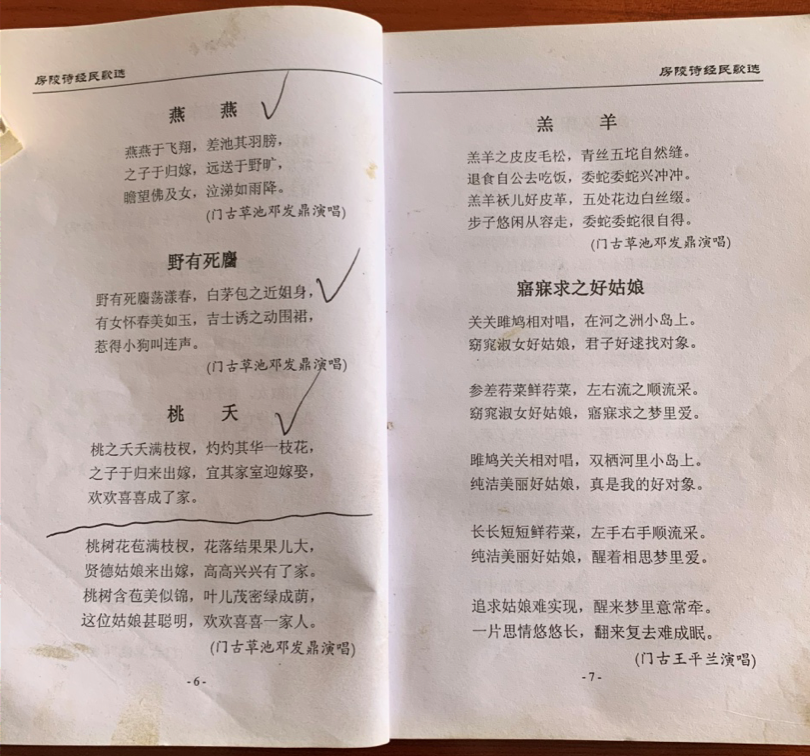 房陵诗经民歌选
燕 燕
燕燕于飞翔，差池其羽膀，
之子于归嫁，远送于野旷，
瞻望佛及女，泣涕如雨降。
(门古草池邓发鼎演唱)
野有死麕
野有死麕荡漾春，白茅包之近姐身，
有女怀春美如玉，吉士诱之动围裙，
惹得小狗叫连声。
(门古草池邓发鼎演唱)
桃 夭
桃之夭夭满枝杈，灼灼其华一枝花，
之子于归来出嫁，宜其家室迎嫁娶，
欢欢喜喜成了家。
桃树花苞满枝杈，花落结果果儿大，
贤德姑娘来出嫁，高高兴兴有了家。
桃树含苞美似锦，叶儿茂密绿成荫，
这位姑娘甚聪明，欢欢喜喜一家人。
(门古草池邓发鼎演唱)
-6-
房陵诗经民歌选
羔 羊
羔羊之皮皮毛松，青丝五坨自然缝。
退食自公去吃饭，委蛇委蛇兴冲冲。
羔羊袄儿好皮革，五处花边白丝缀。
步子悠闲从容走，委蛇委蛇很自得。
(门古草池邓发鼎演唱)
寤寐求之好姑娘
关关雎鸠相对唱，在河之洲小岛上。
窈窕淑女好姑娘，君子好逑找对象。
参差荇菜鲜荇菜，左右流之顺流采。
窈窕淑女好姑娘，寤寐求之梦里爱。
雎鸠关关相对唱，双栖河里小岛上。
纯洁美丽好姑娘，真是我的好对象。
长长短短鲜荇菜，左手右手顺流采。
纯洁美丽好姑娘，醒着相思梦里爱。
追求姑娘难实现，醒来梦里意常牵。
一片思情悠悠长，翻来复去难成眠。
(门古王平兰演唱)
-7-